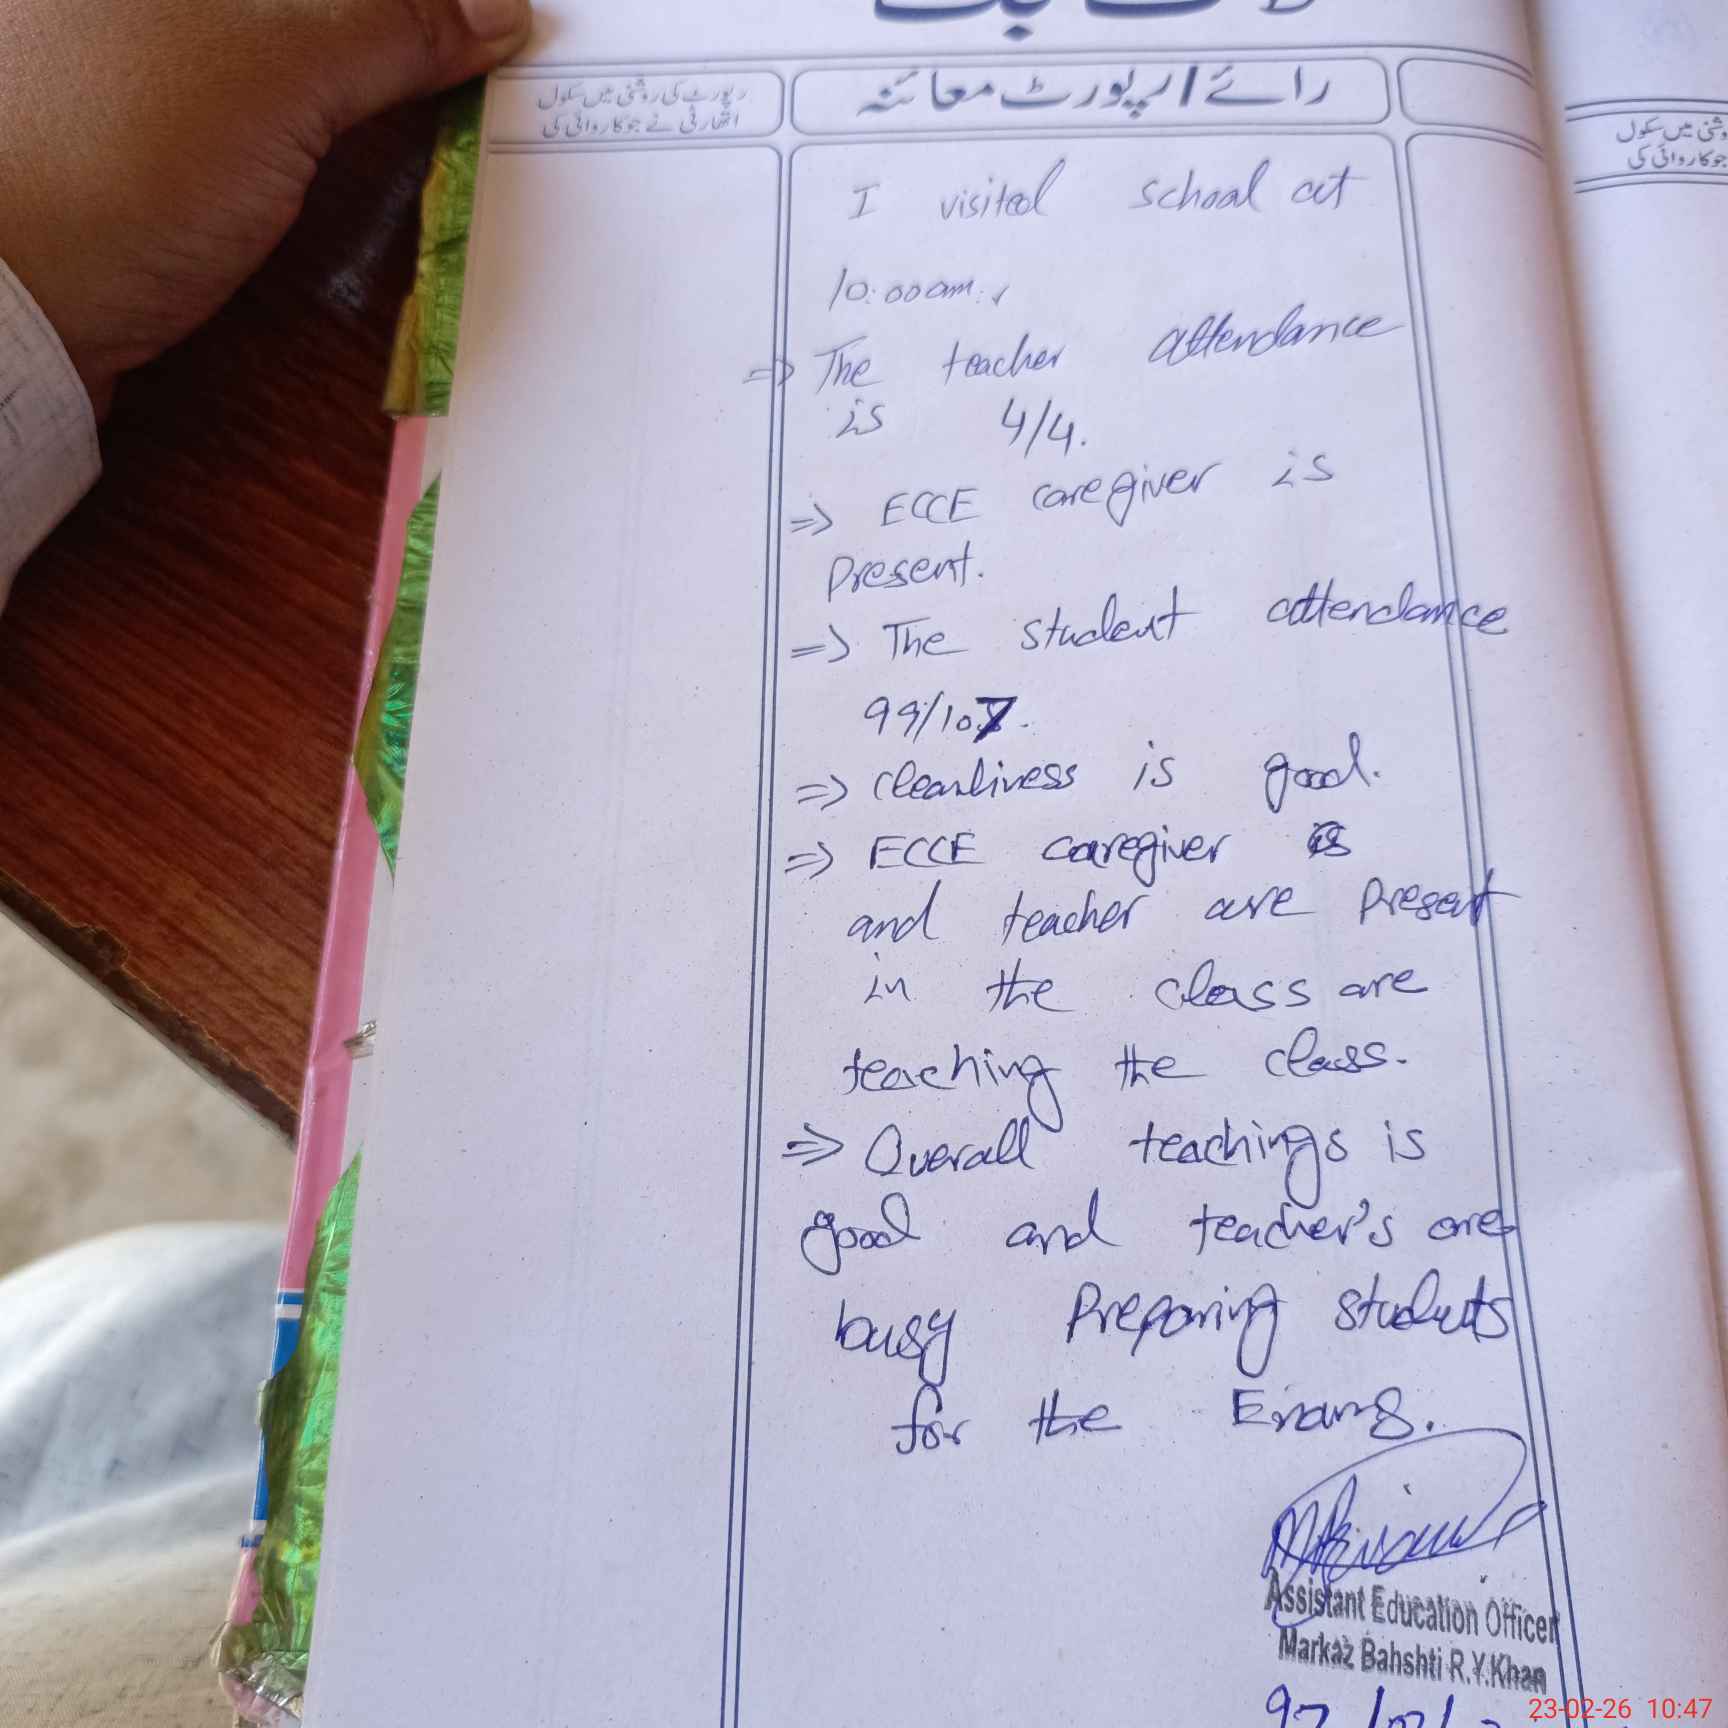 لاگ بک
رپورٹ کی روشنی میں سکول
اتھارٹی نے جو کاروائی کی
رائے / رپورٹ معائنہ
I visited school at
10:00am.
⇒ The teacher attendance
is 4/4.
⇒ ECCE caregiver is
present.
⇒ The student attendance
99/107.
⇒ cleanliness is good.
⇒ ECCE caregiver is
and teacher are present
in the class are
teaching the class.
⇒ Overall teachings is
good and teacher's are
busy Preparing students
for the Exams.
Assistant Education Officer
Markaz Bahshti R.Y.Khan
روشنی میں سکول
جو کاروائی کی
23-02-26 10:47